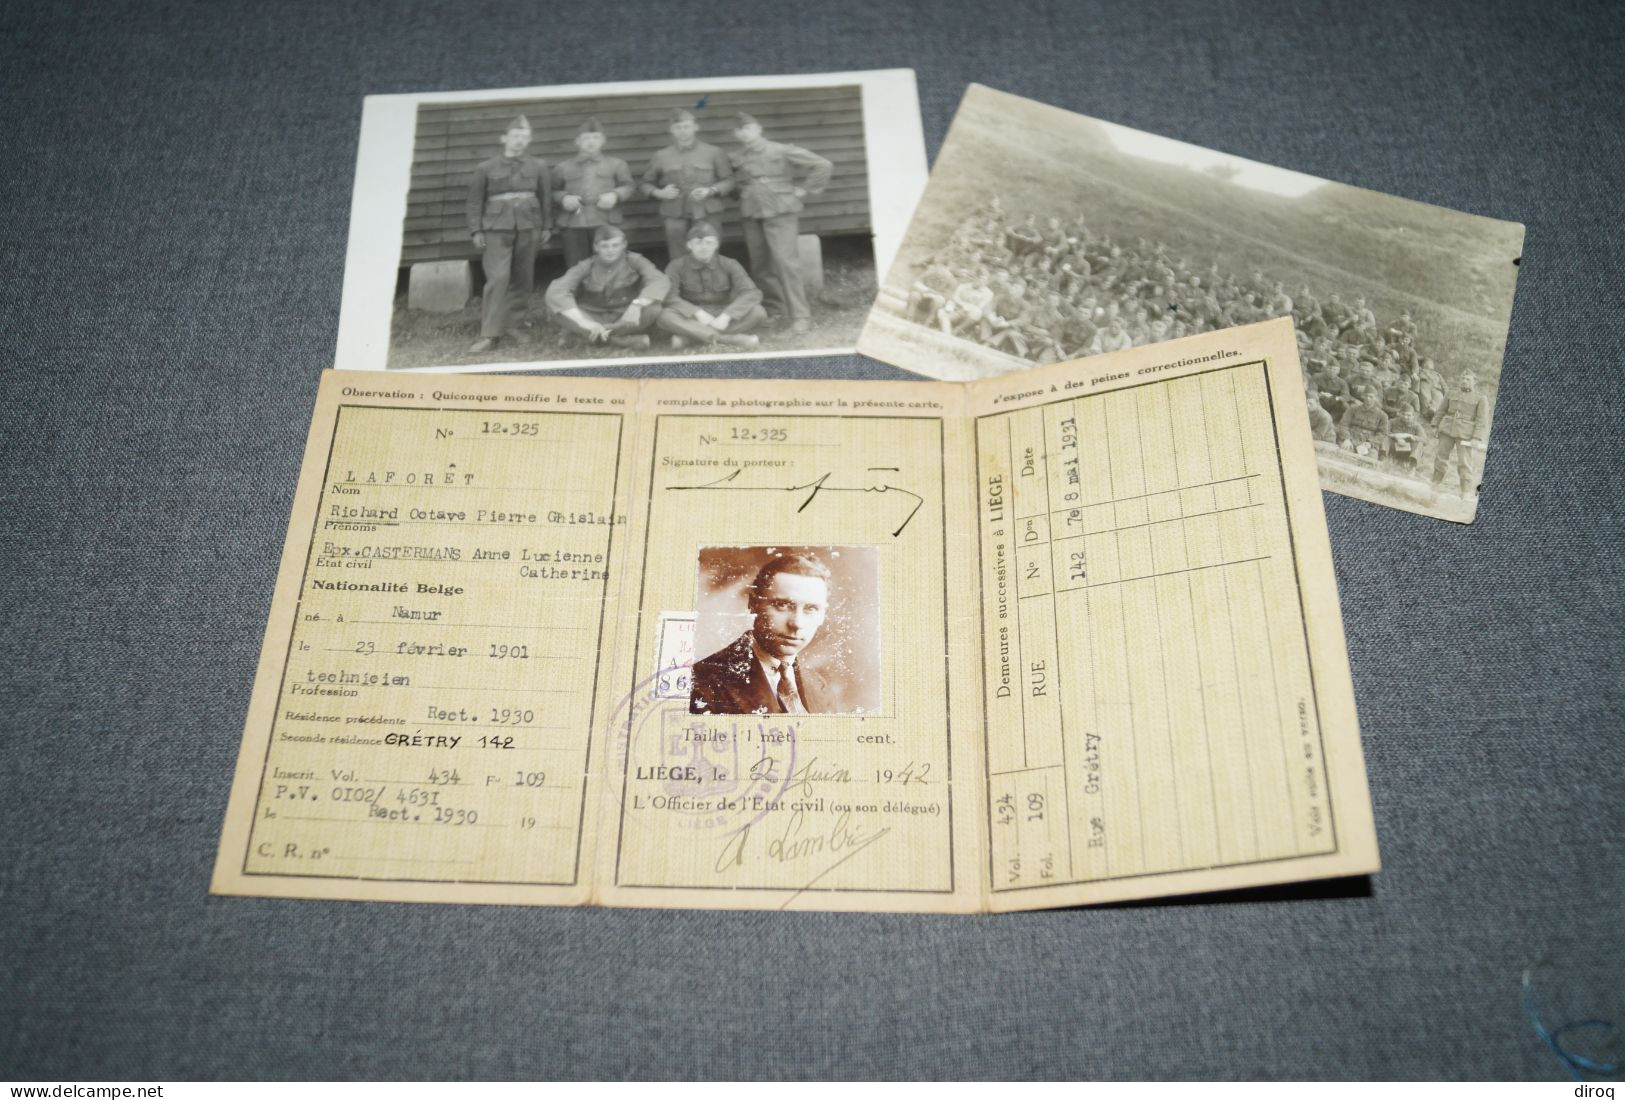 Observation : Quiconque modifie le texte ou remplace la photographie sur la présente carte, s'expose à des peines correctionnelles.
No 12.325
LAFORÊT
Nom
Richard Octave Pierre Ghislain
Prénoms
Epx.CASTERMANS Anne Lucienne
Catherine
Etat civil
Nationalité Belge
né à Namur
le 23 février 1901
technicien
Profession
Résidence précédente Rect. 1930
Seconde résidence GRÉTRY 142
Inscrit Vol. 434 Fo 109
P.V. 0102/ 4631
le Rect. 1930 19
C. R. no
No 12.325
Signature du porteur :
Laforêt
86
Taille : 1 met. cent.
LIÉGE, le 2 juin 1942
L'Officier de l'Etat civil (ou son délégué)
LIÉGE
Demeures successives à LIÉGE
RUE No Don Date
Vol. 434
Fol. 109
Rue Grétry 142 7e 8 mai 1931
Voir suite au verso.
www.delcampe.net
diroq